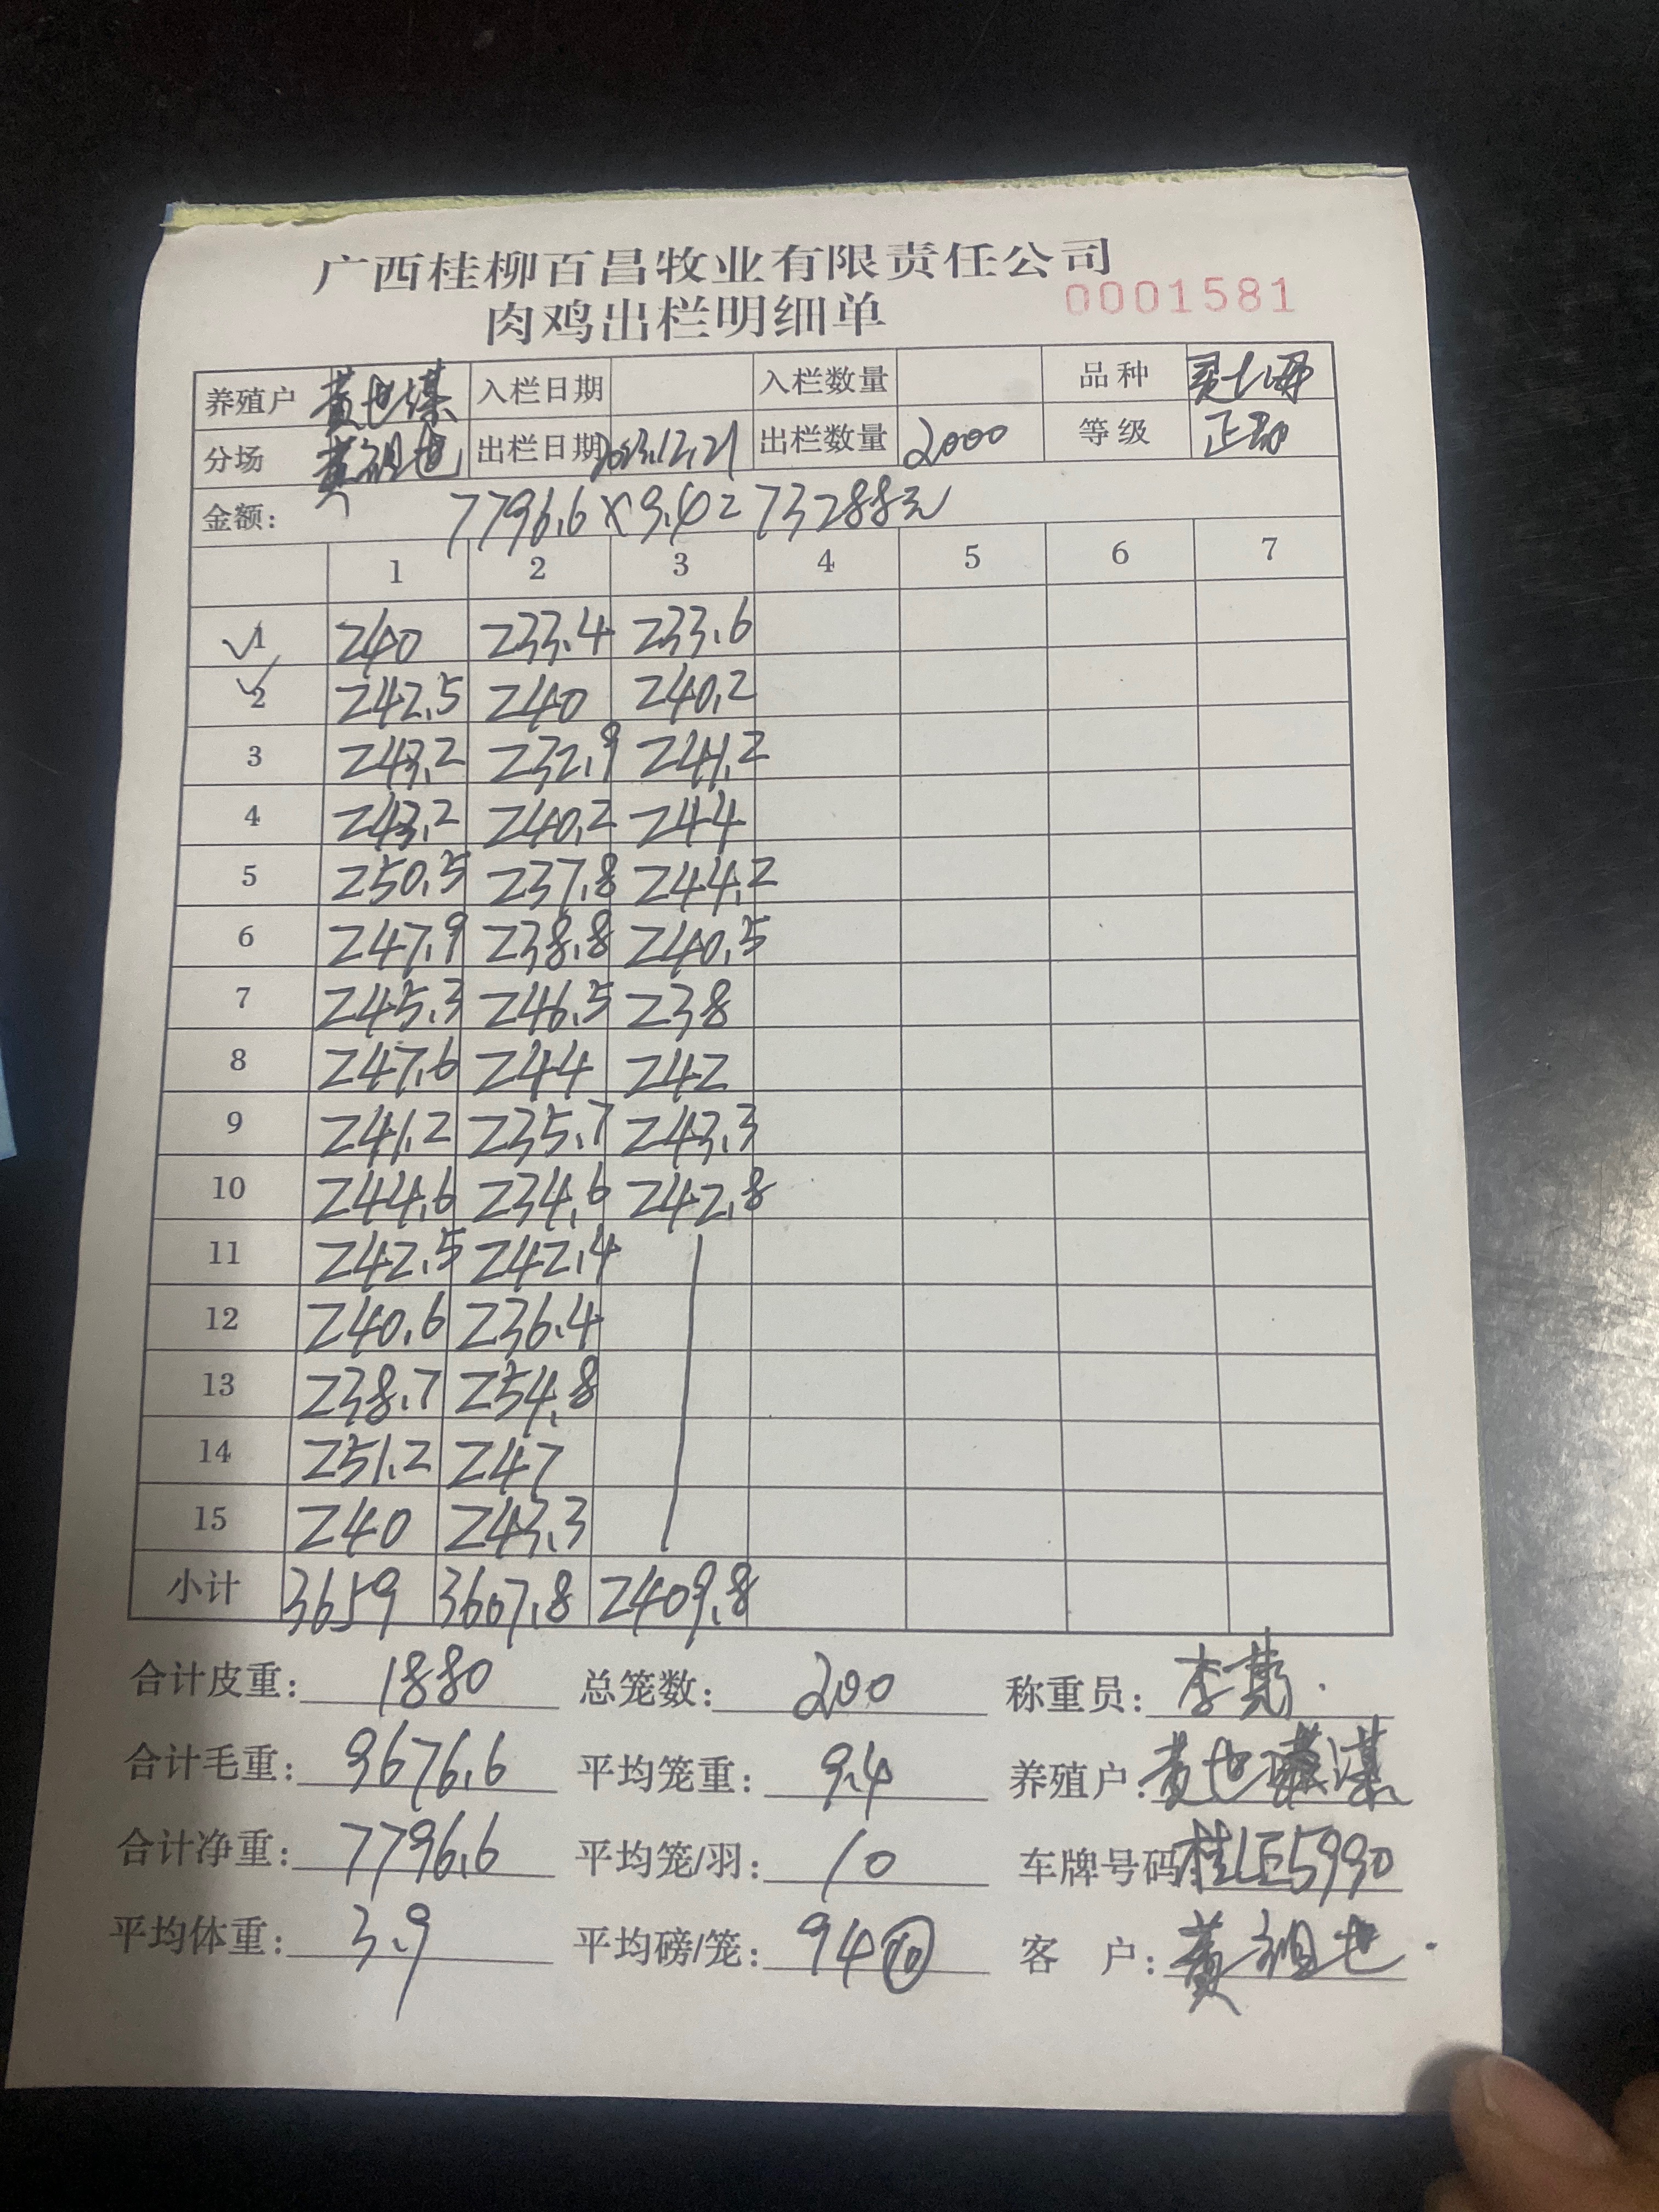 广西桂柳百昌牧业有限责任公司
肉鸡出栏明细单 0001581
养殖户 黄世谋 入栏日期 入栏数量 品种
分场 黄祖也 出栏日期 2023.12.21 出栏数量 2000 等级 正品
金额: 7796.6×9.4=73288元
1 2 3 4 5 6 7
√1 240 233.4 233.6
√2 242.5 240 240.2
3 243.2 232.9 241.2
4 243.2 240.2 244
5 250.5 237.8 244.2
6 247.9 238.8 240.5
7 245.3 246.5 238
8 247.6 244 242
9 241.2 235.7 243.3
10 244.6 234.6 242.8
11 242.5 242.4
12 240.6 236.4
13 238.7 254.8
14 251.2 247
15 240 243.3
小计 3659 3607.8 2409.8
合计皮重: 1880 总笼数: 200 称重员: 李
合计毛重: 9676.6 平均笼重: 9.4 养殖户: 黄世谋
合计净重: 7796.6 平均笼/羽: 10 车牌号码: 桂LE5990
平均体重: 3.9 平均磅/笼: 94⑩ 客 户: 黄祖也